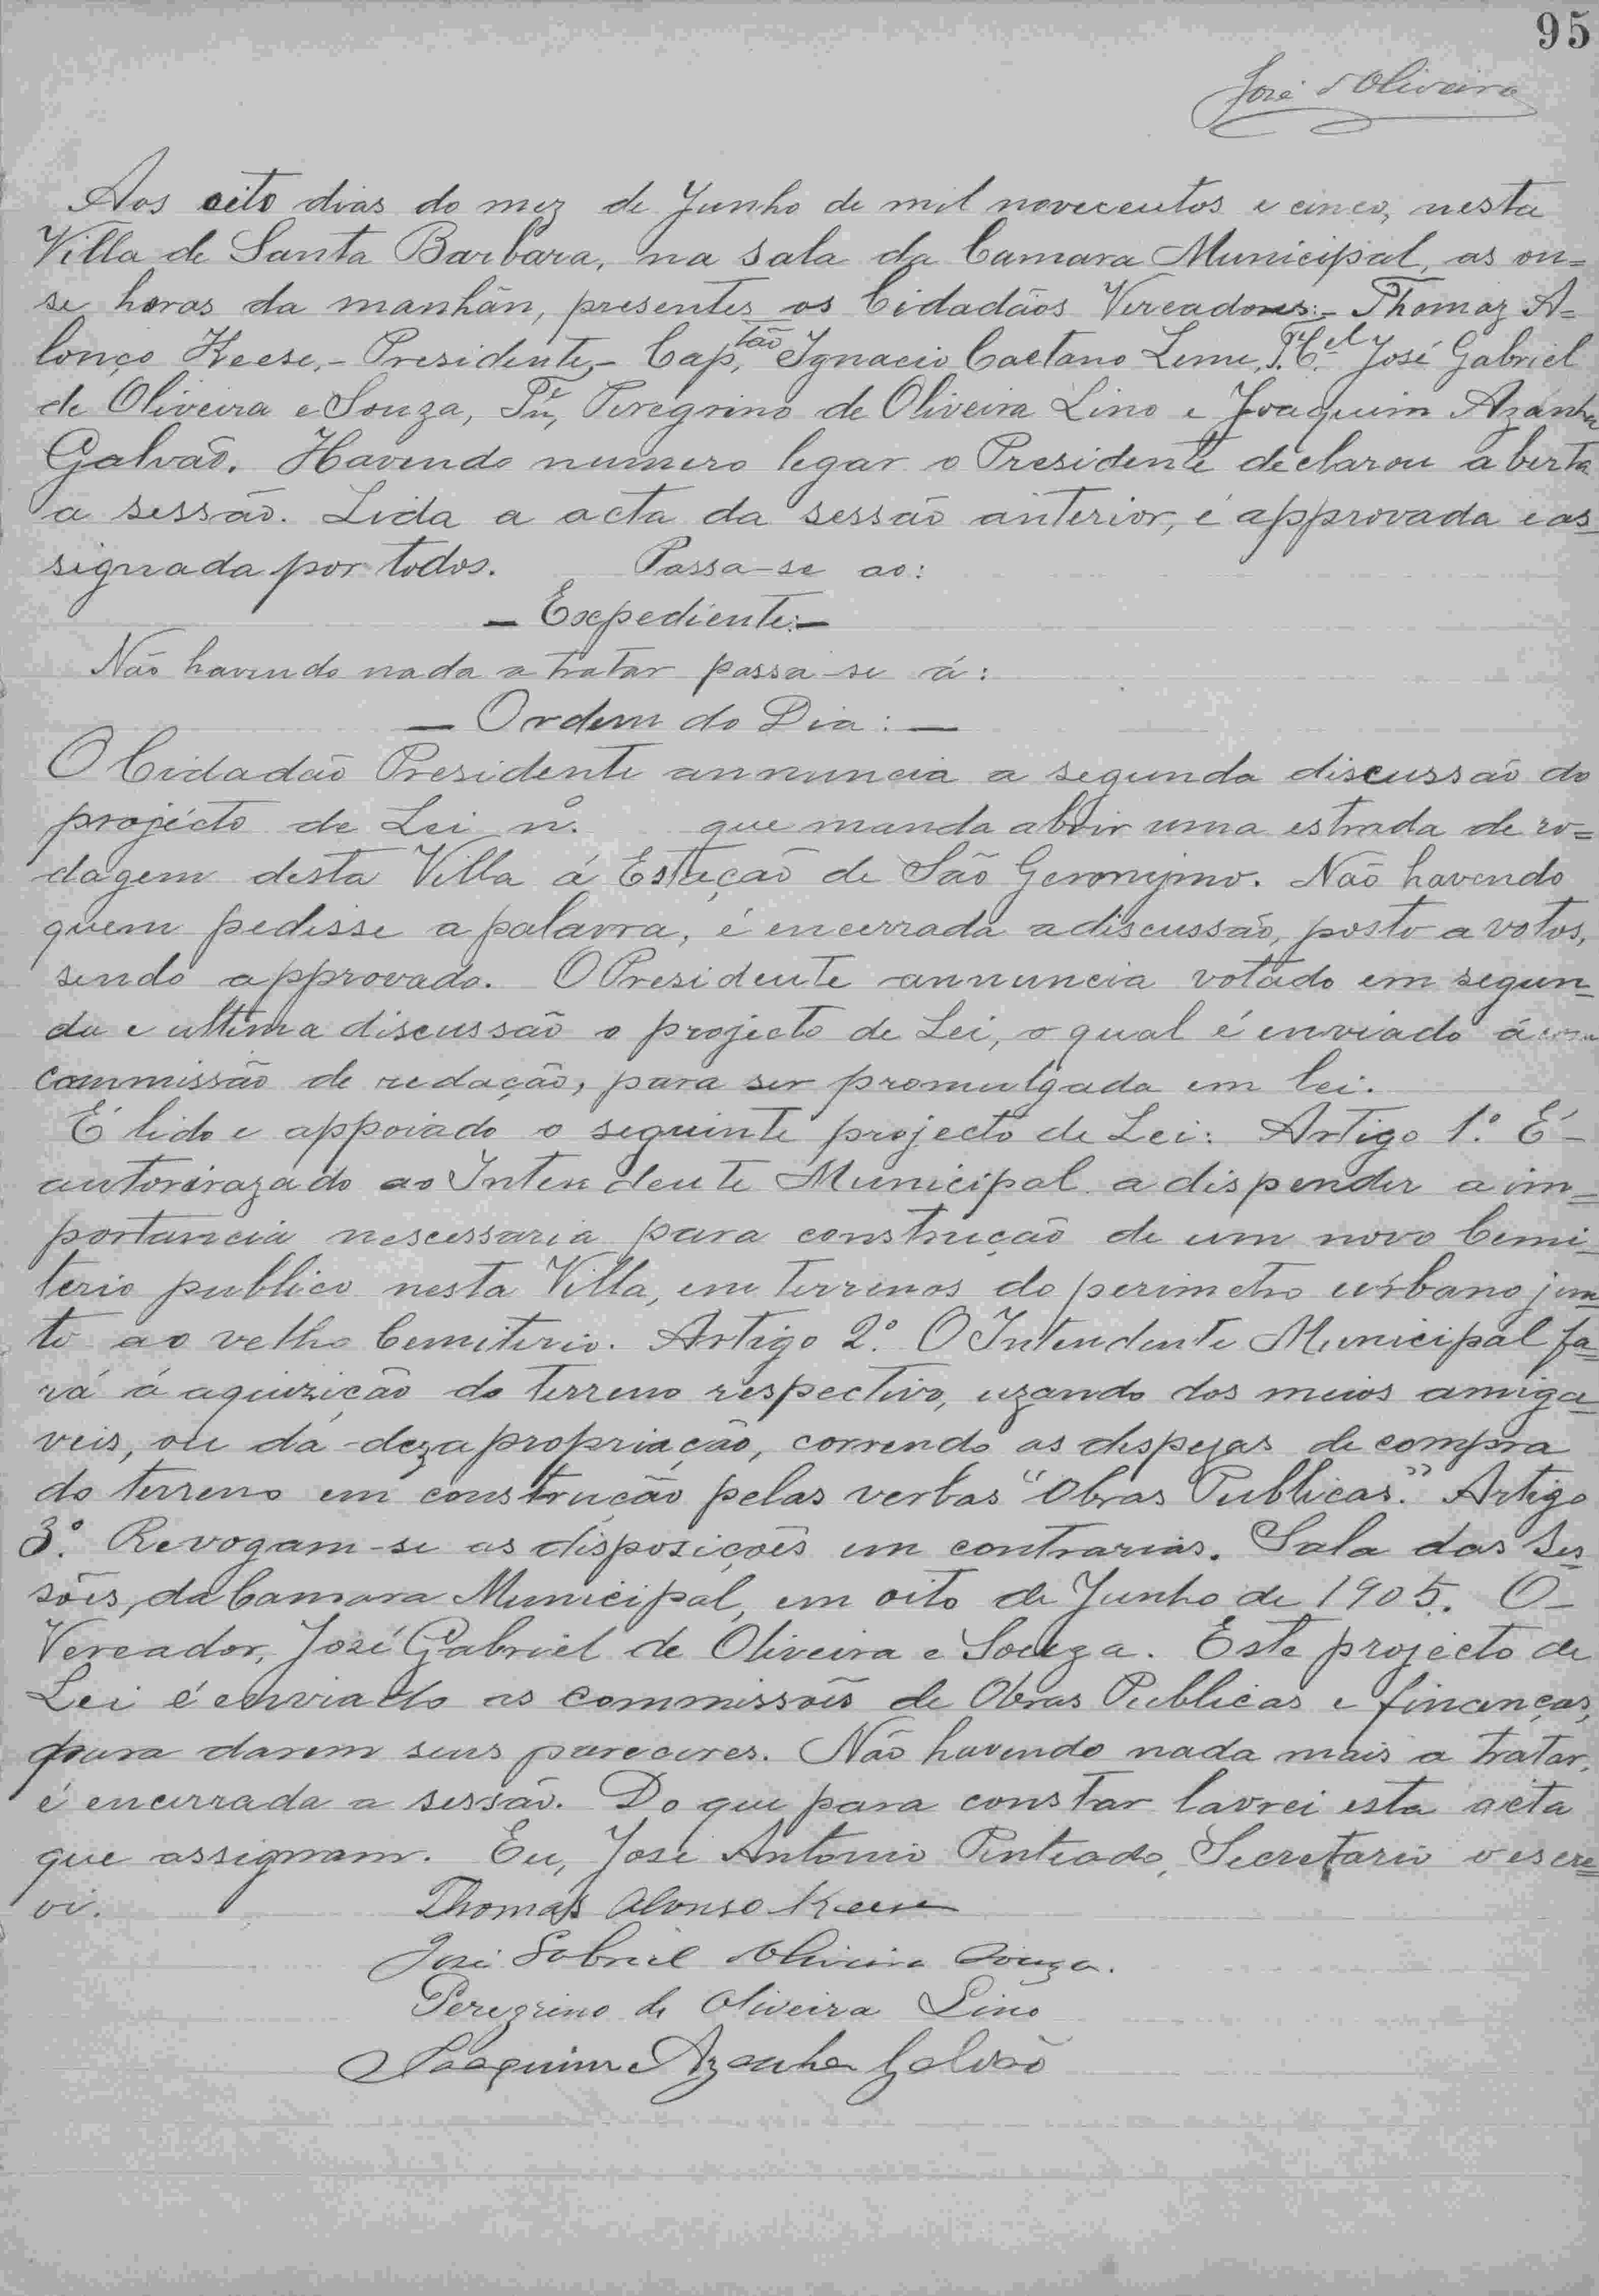 95
José d'Oliveira
Aos oito dias do mez de Junho de mil novecentos e cinco, nesta
Villa de Santa Barbara, na sala da Camara Municipal, as on=
se horas da manhãn, presentes os Cidadãos Vereadores:- Thomaz A=
lonço Keese,- Presidente,- Cap.tão Ignacio Caetano Leme, T.Cel José Gabriel
de Oliveira e Souza, Peregrino de Oliveira Lino e Joaquim Azanha
Galvão. Havendo numero legar o Presidente declarou aberta
a sessão. Lida a acta da sessão anterior, é approvada e as
signada por todos. Passa-se ao:
- Expediente:-
Não havendo nada a tratar passa-se á:
- Ordem do Dia: -
O Cidadão Presidente annuncia a segunda discussão do
projécto de Lei nº. que manda abrir uma estrada de ro=
dagem desta Villa á Estação de São Geronymo. Não havendo
quem pedisse a palavra, é encerrada a discussão, posto a votos,
sendo approvado. O Presidente annuncia votado em segun-
da e ultima discussão o projecto de Lei, o qual é enviado á
commissão de redação, para ser promulgada em lei.
É lido e appoiado o seguinte projecto de Lei: Artigo 1º. É-
autorirazado ao Intendente Municipal a dispender a im=
portancia nescessaria para construcção de um novo Cemi-
terio publico nesta Villa, em terrenos do perimetro urbano jun
to ao velho Cemiterio. Artigo 2º. O Intendente Municipal fa=
rá á aquizição do terreno respectivo, uzando dos meios amiga=
veis, ou da dezapropriação, correndo as despezas de compra
do terreno em construcção pelas verbas "Obras Publicas." Artigo
3º. Revogam-se as disposições em contrarias. Sala das Ses
sões, da Camara Municipal, em oito de Junho de 1905. O-
Vereador, José Gabriel de Oliveira e Souza. Este projecto de
Lei é enviado as commissões de Obras Publicas e finanças,
para darem seus pareceres. Não havendo nada mais a tratar,
é encerrada a sessão. Do que para constar lavrei esta acta
que assignam. Eu, José Antonio Penteado, Secretario o escre=
vi.
Thomas Alonso Keese
José Gabriel Oliveira Souza.
Peregrino de Oliveira Lino
Joaquim Azanha Galvão